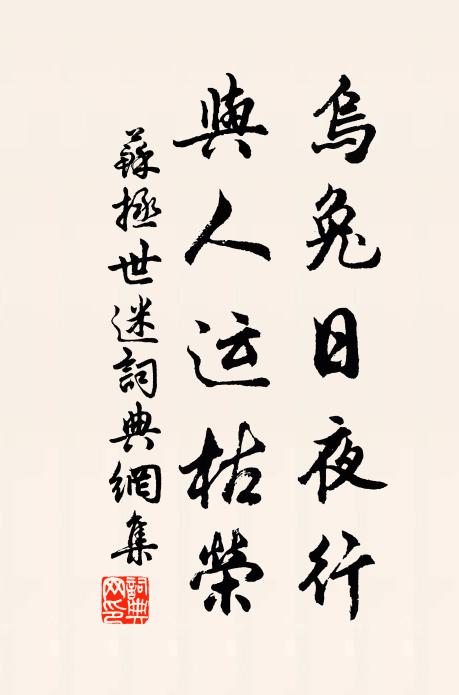 烏兔日夜行
與人运枯榮
蘇拯世迷詞典網集
詞典网印